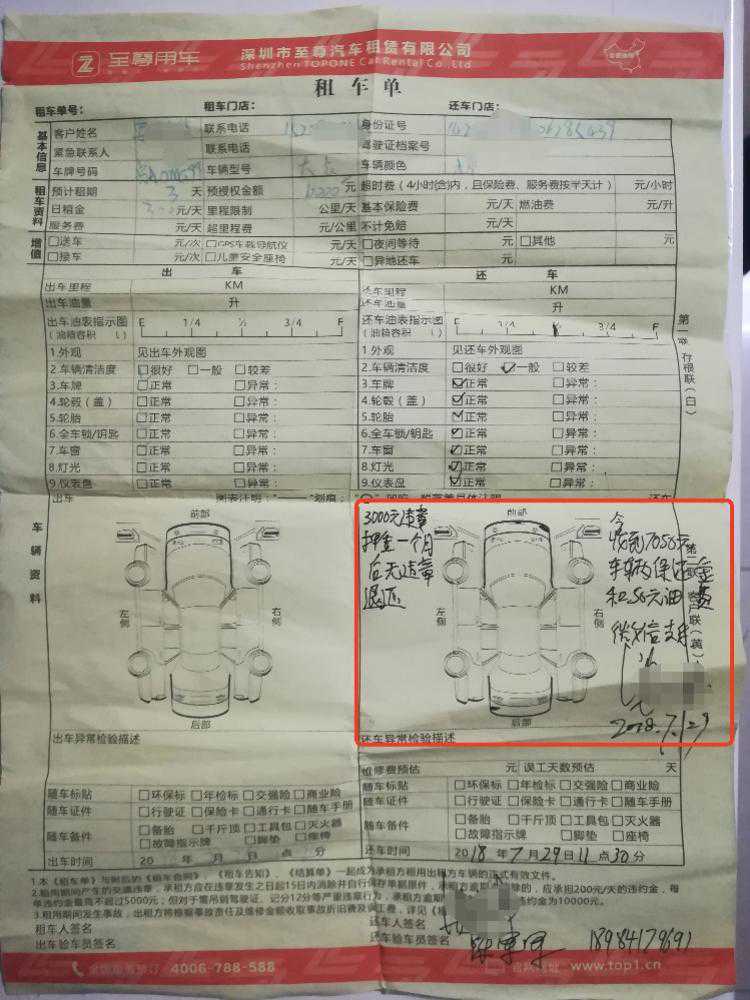 至尊用车
深圳市至尊汽车租赁有限公司
Shenzhen TOPONE Car Rental Co. Ltd
租车单
租车单号: 租车门店: 还车门店:
基本信息
客户姓名 联系电话 身份证号
紧急联系人 联系电话 驾驶证档案号
车牌号码 车辆型号 车辆颜色
租车资料
预计租期 3 天 预授权金额 元 超时费(4小时(含)内,且保险费、服务费按半天计) 元/小时
日租金 元/天 里程限制 公里/天 基本保险费 元/天 燃油费 元/升
服务费 元/天 超里程费 元/公里 不计免赔 元/天
增值
□送车 元/次 □GPS车载导航仪 元/天 □夜间等待 元 □其他 元
□接车 元/次 □儿童安全座椅 元/天 □异地还车 元
出车 还车
出车里程 KM 还车里程 KM
出车油量 升 还车油量 升
出车油表指示图 E 1/4 ½ 3/4 F 还车油表指示图 E 1/4 3/4 F
(油箱容积 L) (油箱容积 L)
1.外观 见出车外观图 1.外观 见还车外观图
2.车辆清洁度 □很好 □一般 □较差 2.车辆清洁度 □很好 ☑一般 □较差
3.车牌 □正常 □异常: 3.车牌 ☑正常 □异常:
4.轮毂(盖) □正常 □异常: 4.轮毂(盖) ☑正常 □异常:
5.轮胎 □正常 □异常: 5.轮胎 ☑正常 □异常:
6.全车锁/钥匙 □正常 □异常: 6.全车锁/钥匙 ☑正常 □异常:
7.车窗 □正常 □异常: 7.车窗 ☑正常 □异常:
8.灯光 □正常 □异常: 8.灯光 ☑正常 □异常:
9.仪表盘 □正常 □异常: 9.仪表盘 ☑正常 □异常:
第一联 存根联(白)
客户联(黄)
出车 还车
车辆资料
前部 左侧 右侧 后部
3000元违章
押金一个月
后无违章
退还
前部 左侧 右侧 后部
今
收到7056元
车辆保证金
和56元油费
微信支付
2018.7.29
出车异常检验描述 还车异常检验描述
维修费预估 元 误工天数预估 天
随车标贴 □环保标 □年检标 □交强险 □商业险 随车标贴 □环保标 □年检标 □交强险 □商业险
随车证件 □行驶证 □保险卡 □通行卡 □随车手册 随车证件 □行驶证 □保险卡 □通行卡 □随车手册
随车备件 □备胎 □千斤顶 □工具包 □灭火器 随车备件 □备胎 □千斤顶 □工具包 □灭火器
□故障指示牌 □脚垫 □座椅 □故障指示牌 □脚垫 □座椅
出车时间 20 年 月 日 点 分 还车时间 2018年7月29日11点30分
1.本《租车单》与附后的《租车合同》、《租车告知》、《结算单》一起成为承租方租用出租方车辆的正式有效文件。
2.租用期间产生的交通违章,承租方应在违章发生之日起15日内消除并自行保存单据原件,承租方逾期 除的,应承担200元/天的违约金,每
单违约金最高不超过5000元;但对于需吊销驾驶证、记分12分等严重违章行为,承租方逾期 违约金为10000元。
3.租用期间发生事故,出租方将根据事故责任及维修金额收取事故折旧费及误工费,详见《租
租车人签名 还车人签名
出车验车员签名 还车验车员签名 18984179691
全国服务预订 4006-788-588 官网地址 www.top1.cn